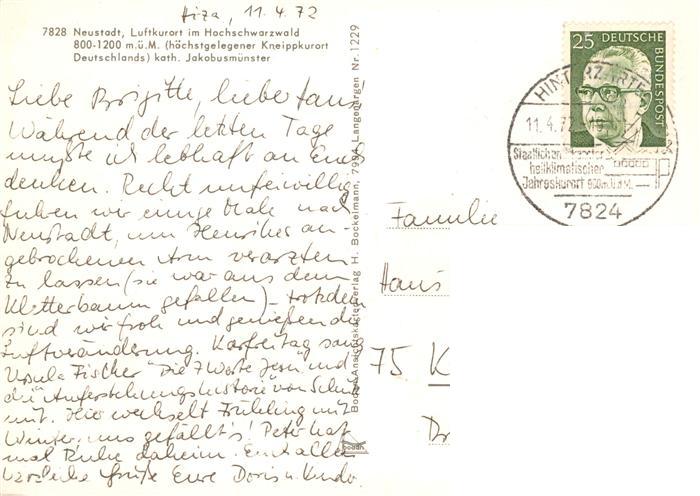 Hiza, 11.4.72
7828 Neustadt, Luftkurort im Hochschwarzwald
800-1200 m.ü.M. (höchstgelegener Kneippkurort
Deutschlands) kath. Jakobusmünster
Liebe Brigitte, lieber Hans
Während der letzten Tage
mußte ich lebhaft an Euch
denken. Recht unfreiwillig
fuhren wir einige Male nach
Neustadt, um Henrikes an-
gebrochenen Arm verarzten
zu lassen (sie war aus dem
Kletterbaum gefallen) – trotzdem
sind wir froh und genießen die
Luftveränderung. Karfreitag sang
Ursula Fischer "Die 7 Worte Jesu" und
die "Auferstehungshistorie" von Schütz
mit. Hier wechselt Frühling mit
Winter, uns gefällt's! Peter hat
mal Ruhe daheim. Euch allen
herzliche Grüße Eure Doris u.
Bodan-Ansichtskartenverlag H. Bockelmann, 7994 Langenargen Nr. 1229
25 DEUTSCHE BUNDESPOST
HINTERZARTEN
11.4.72
Staatlich
heilklimatischer
Jahreskurort
7824
Familie
Hans
75 K